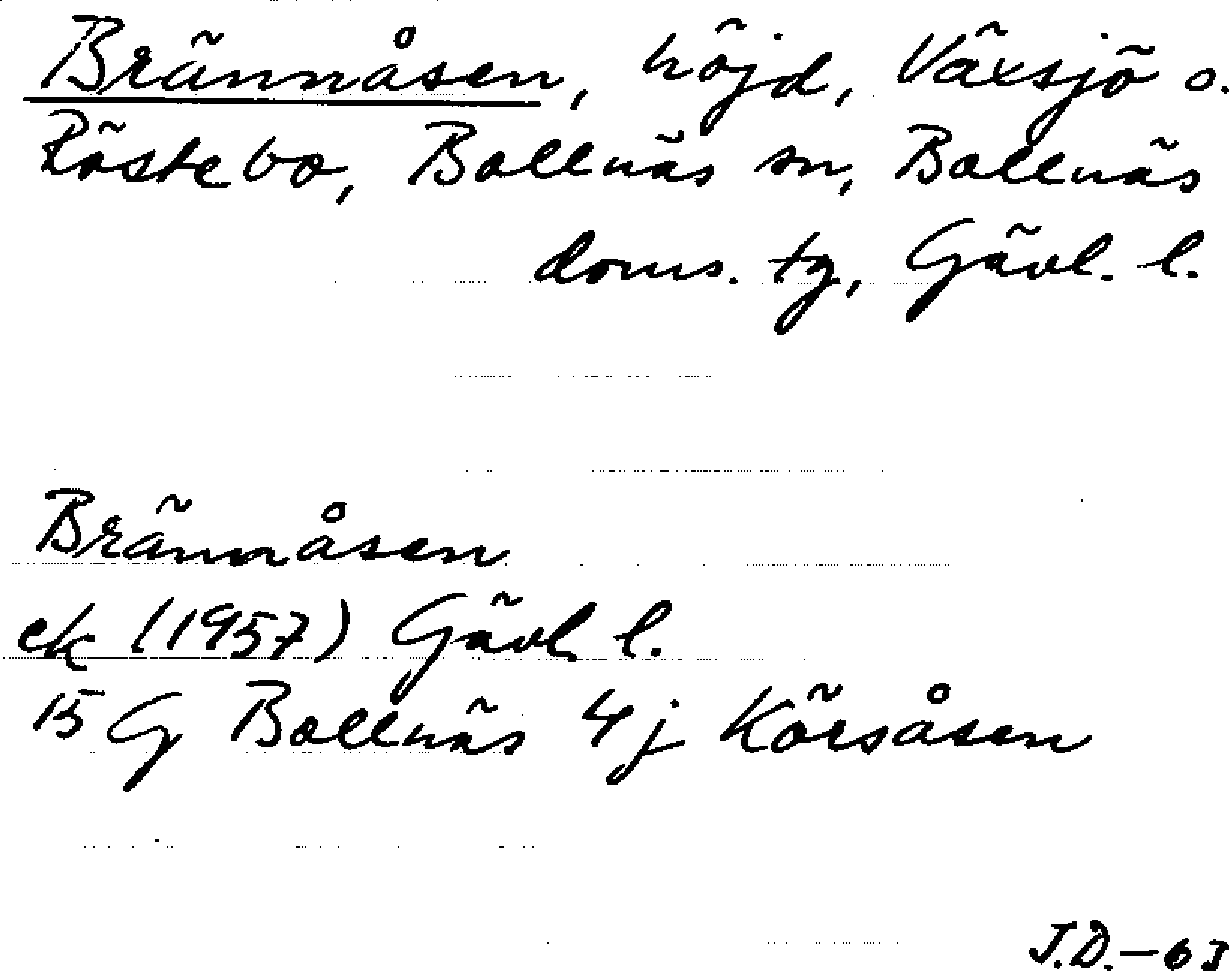 Brännåsen, höjd, Växsjö o.
Röstebo, Bollnäs sn, Bollnäs
doms. tg, Gävl. l.
Brännåsen
ek (1957) Gävl. l.
15 G Bollnäs 4j Körsåsen
J.D.-63